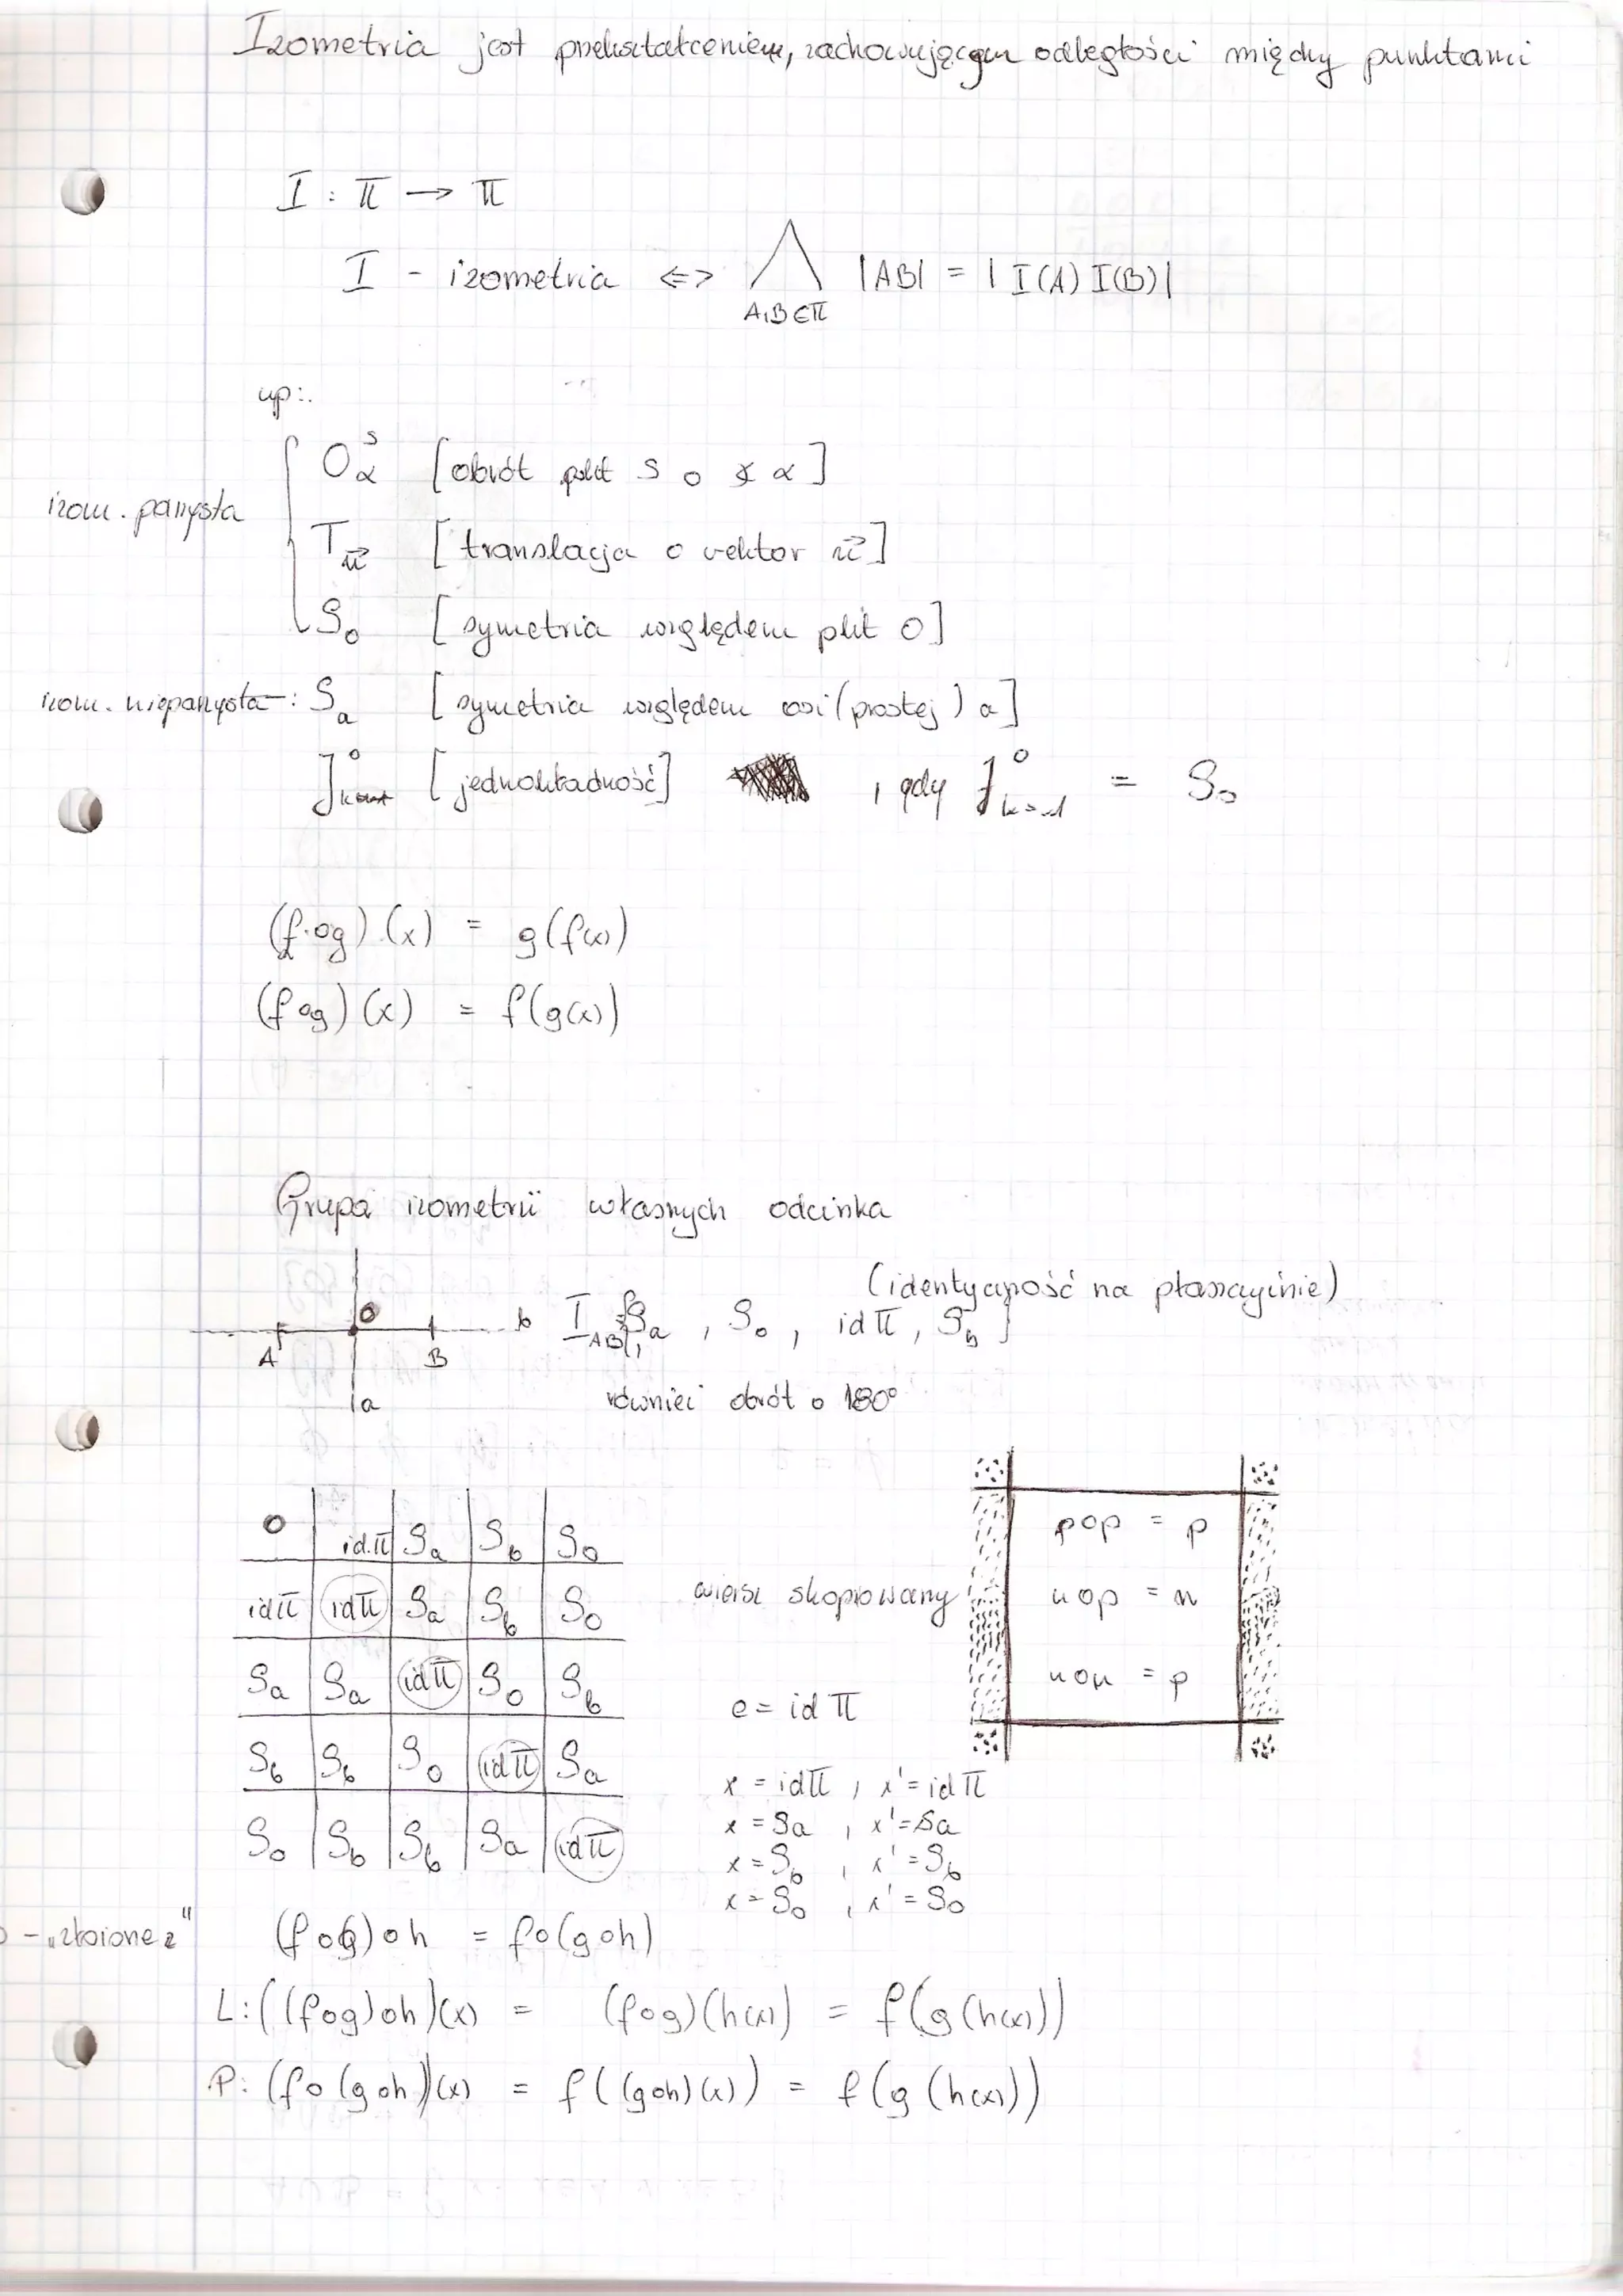 Izometria jest przekształceniem, zachowującym odległości między punktami
I : π → π
I - izometria <=> ⋀ |AB| = | I(A) I(B)|
A,B∈π
np:.
O_α^S [obrót pkt S o ∢ α]
izom. parzysta
T_u⃗ [translacja o vektor u⃗]
S_o [symetria względem pkt O]
izom. nieparzysta: S_a [symetria względem osi (prostej) a]
J^o_k [jednokładność] , gdy J^o_k=-1 = S_o
(f∘g)(x) = g(f(x))
(f∘g)(x) = f(g(x))
Grupa izometrii własnych odcinka
(identyczność na płaszczyźnie)
O b I_AB = {S_a , S_o , idπ, S_b}
A B
a również obrót o 180°
O | id.π | S_a | S_b | S_o
idπ | idπ | S_a | S_b | S_o
S_a | S_a | idπ | S_o | S_b
S_b | S_b | S_o | idπ | S_a
S_o | S_b | S_b | S_a | idπ
wiersz skopiowany
p∘p = p
n∘p = n
n∘n = p
e = id π
x = idπ , x' = idπ
x = S_a , x' = S_a
x = S_b , x' = S_b
x = S_o , x' = S_o
o - „złożone z"
(f∘g)∘h = f∘(g∘h)
L: ((f∘g)∘h)(x) = (f∘g)(h(x)) = f(g(h(x)))
P: (f∘(g∘h))(x) = f((g∘h)(x)) = f(g(h(x)))